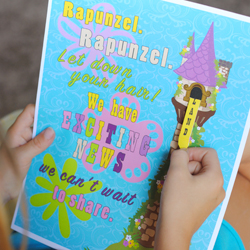 Rapunzel.
Rapunzel.
Let down
your hair!
We have
EXCITING
NEWS
we can't wait
to share.